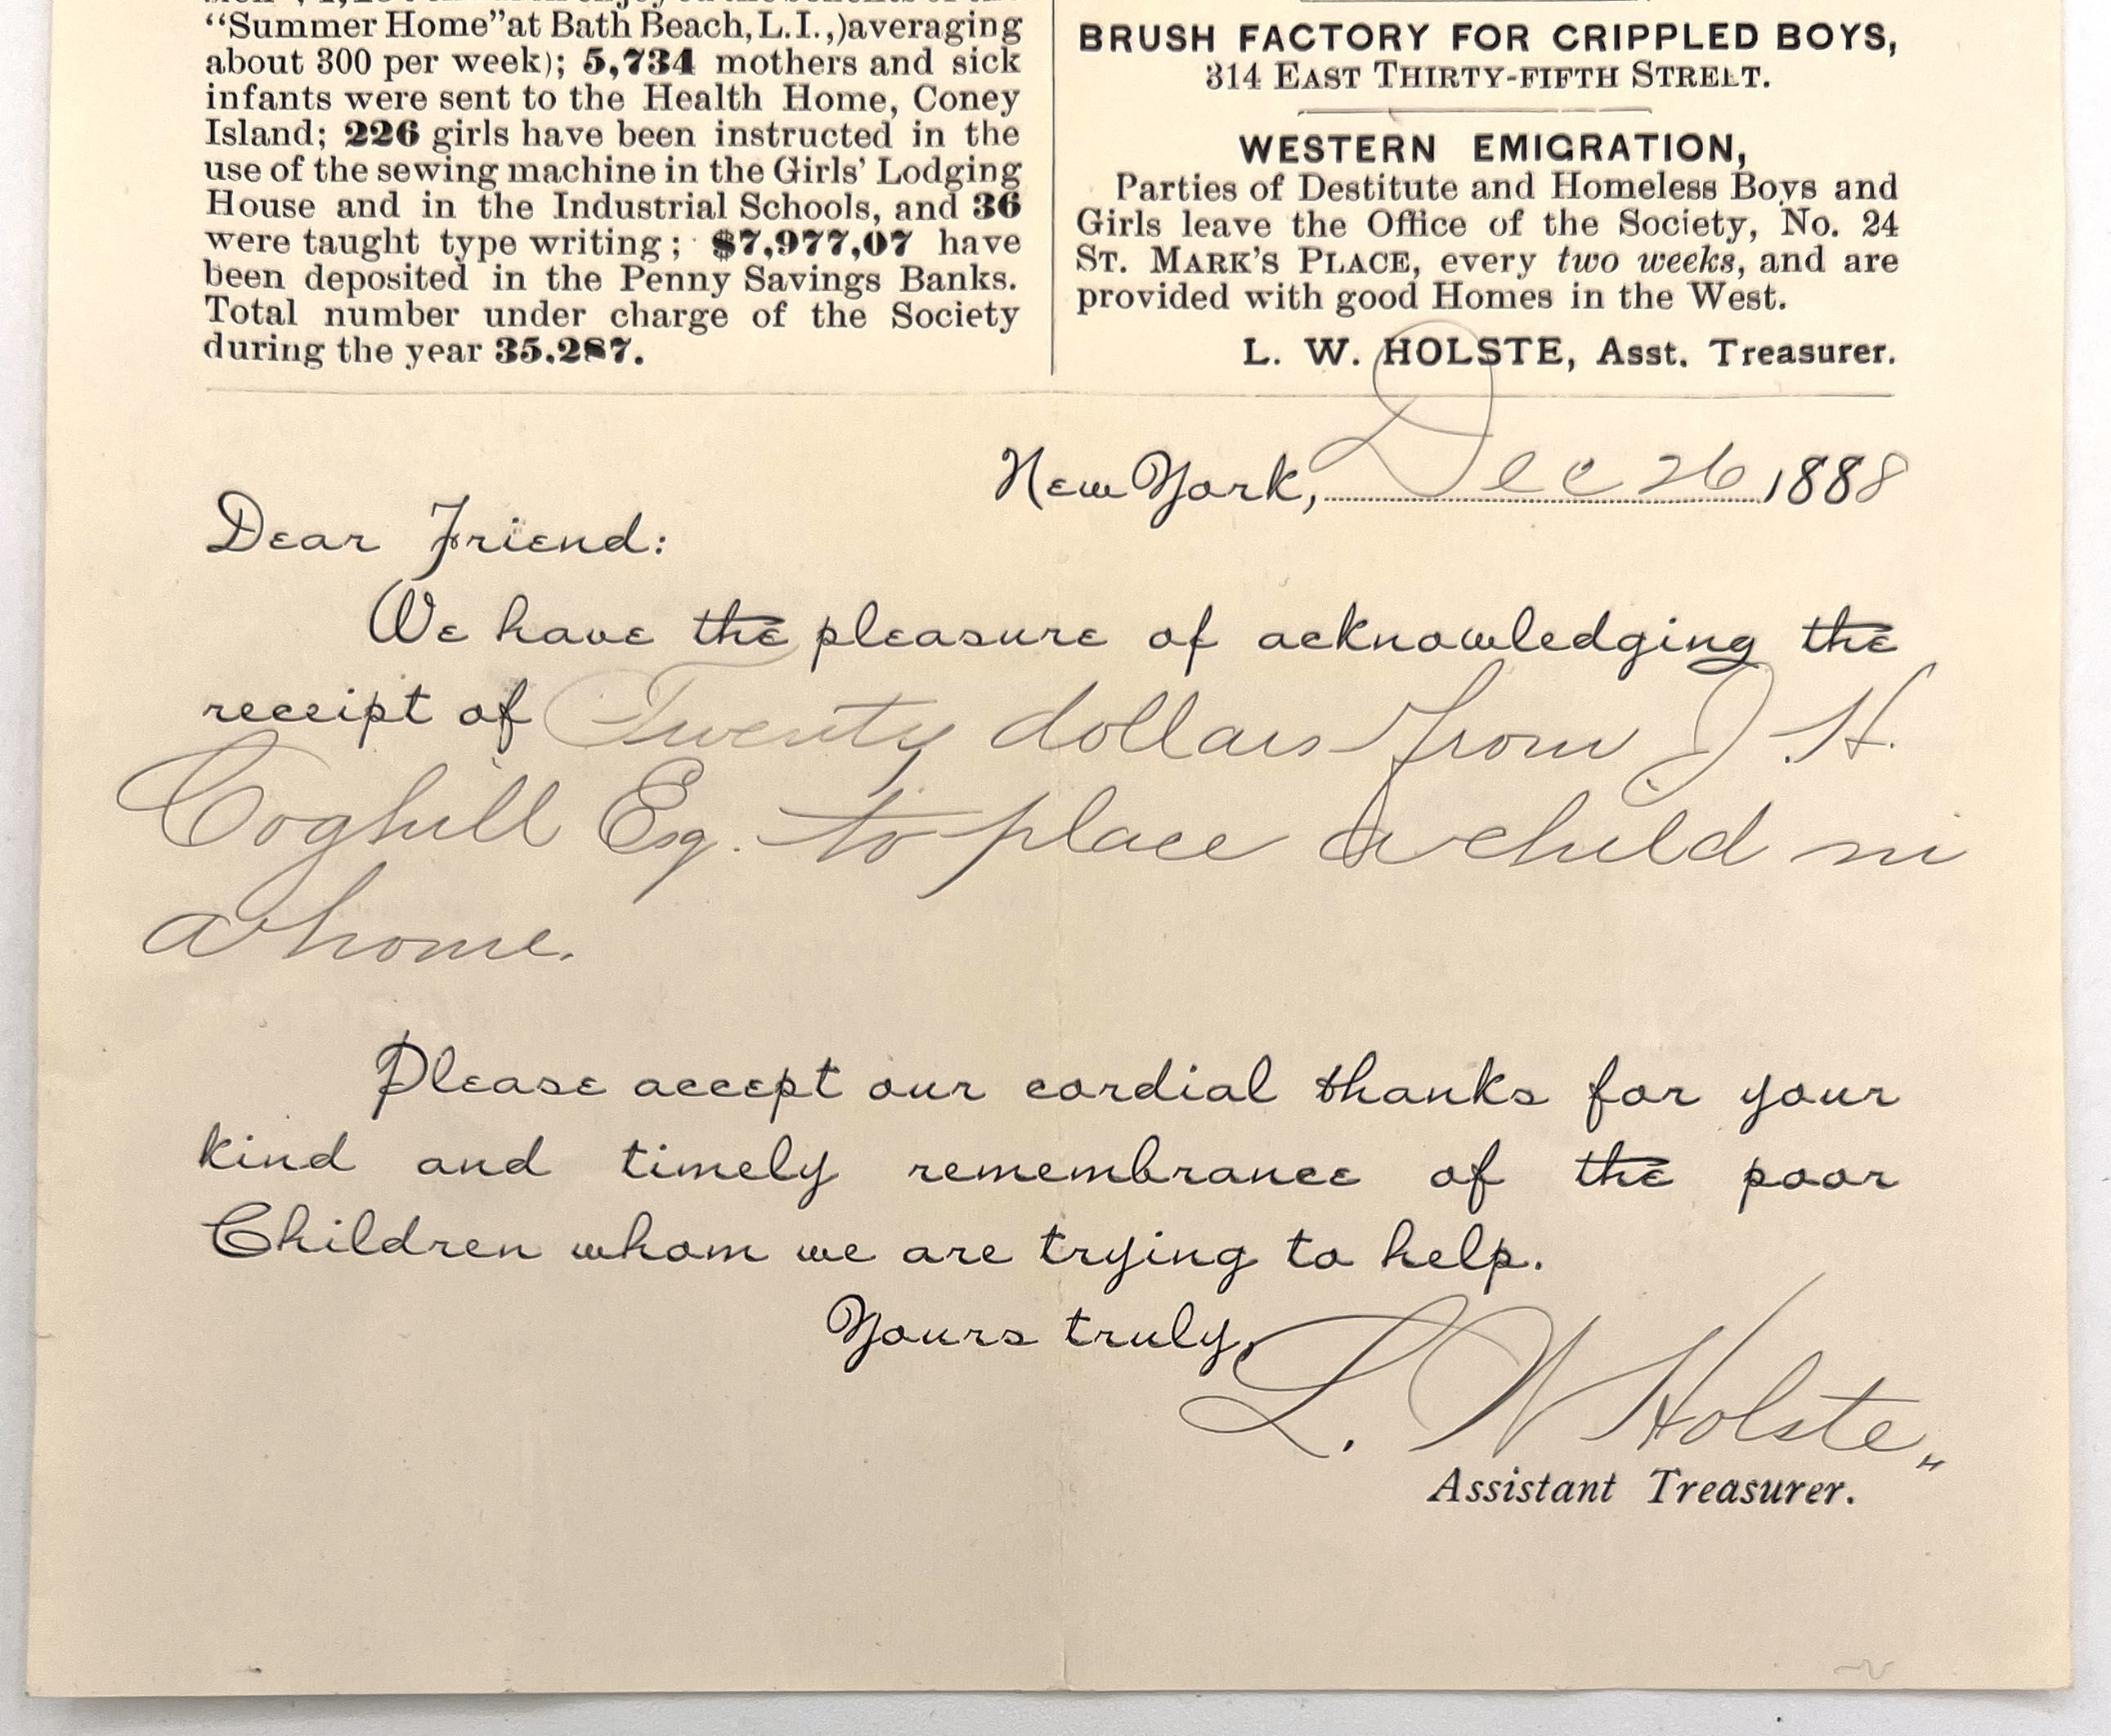 "Summer Home" at Bath Beach, L.I.,) averaging
about 300 per week); 5,734 mothers and sick
infants were sent to the Health Home, Coney
Island; 226 girls have been instructed in the
use of the sewing machine in the Girls' Lodging
House and in the Industrial Schools, and 36
were taught type writing; $7,977,07 have
been deposited in the Penny Savings Banks.
Total number under charge of the Society
during the year 35.287.
BRUSH FACTORY FOR CRIPPLED BOYS,
314 EAST THIRTY-FIFTH STREET.
WESTERN EMIGRATION,
Parties of Destitute and Homeless Boys and
Girls leave the Office of the Society, No. 24
ST. MARK'S PLACE, every two weeks, and are
provided with good Homes in the West.
L. W. HOLSTE, Asst. Treasurer.
New York, Dec 26 1888
Dear Friend:
We have the pleasure of acknowledging the
receipt of Twenty dollars from J. H.
Coghill Esq. to place a child in
a home.
Please accept our cordial thanks for your
kind and timely remembrance of the poor
Children whom we are trying to help.
Yours truly,
L. W Holste
Assistant Treasurer.